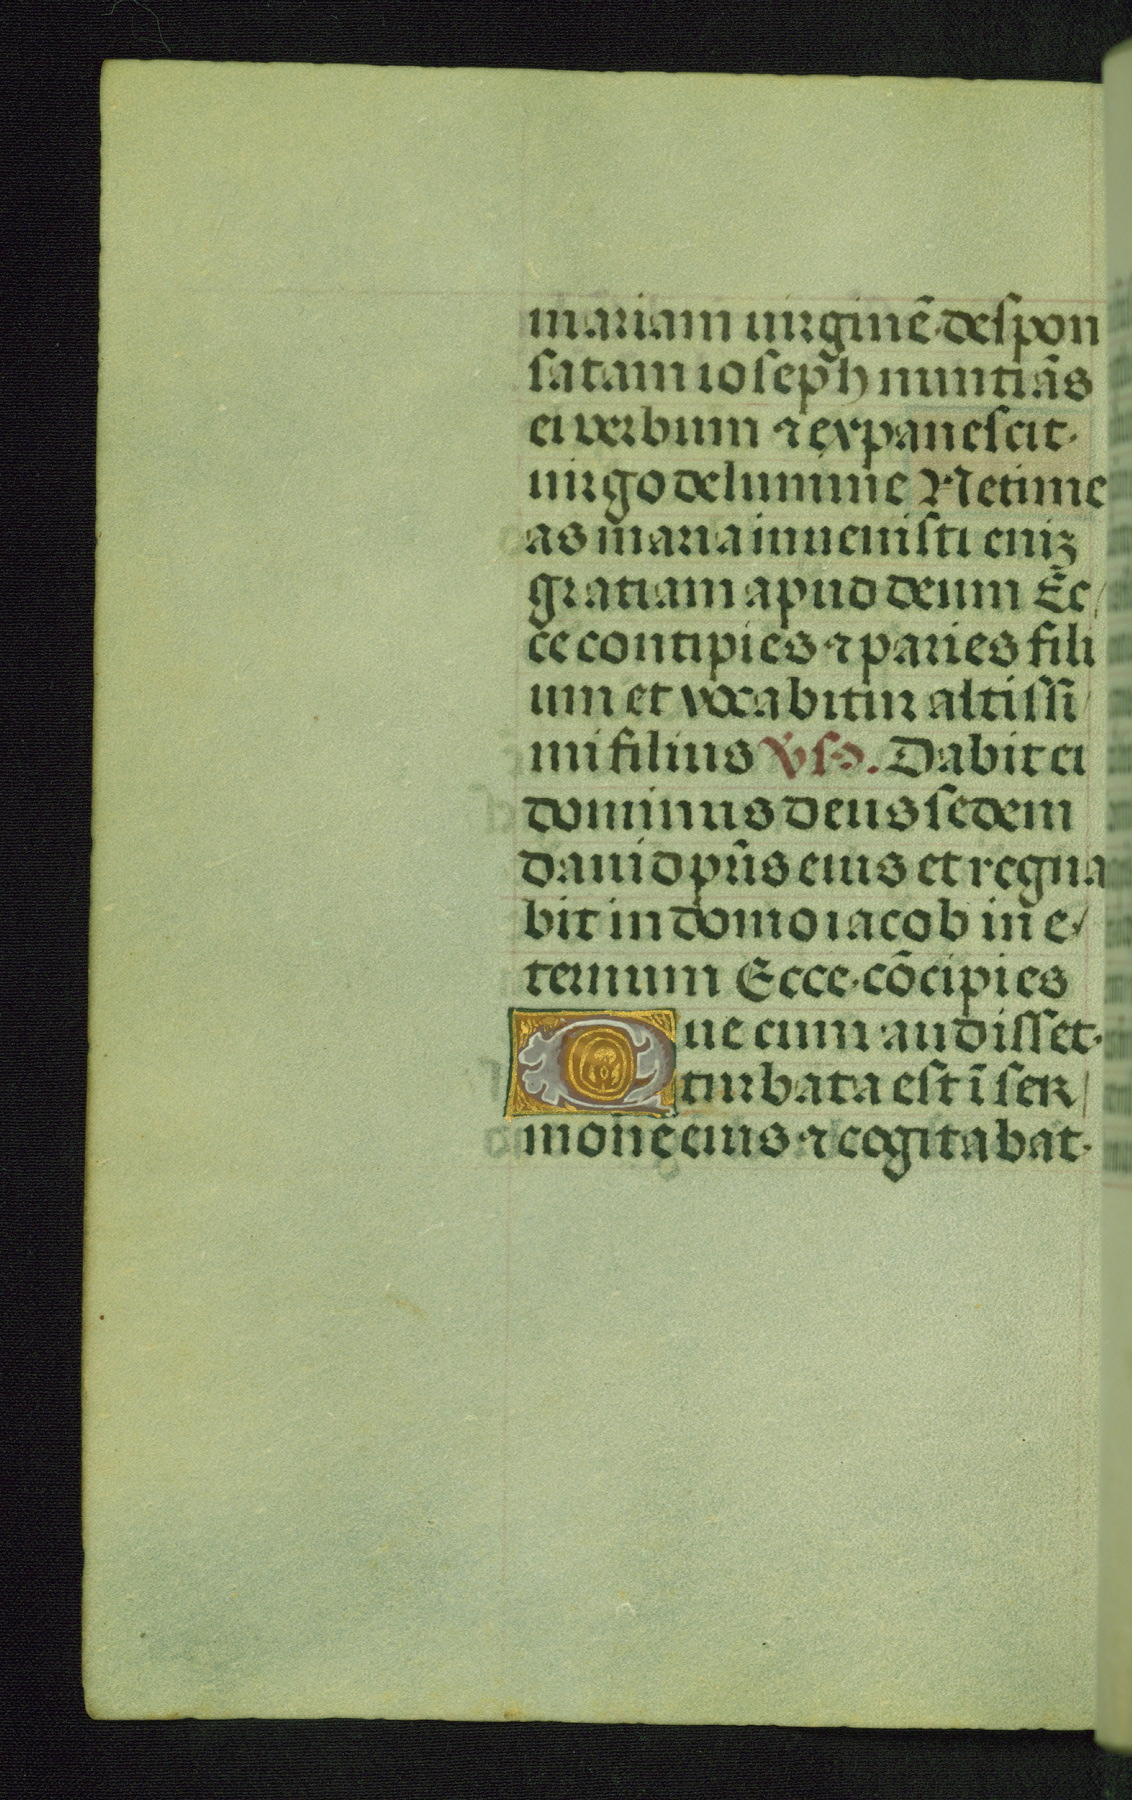 mariam uirginē despon
satam ioseph nuntiās
ei verbum ⁊ expauescit·
uirgo de lumine Ne time
as maria inuenisti eniz
gratiam apud deum Ec/
ce contipies ⁊ paries fili
um et vocabitur altissi
mi filius v̄s. Dabit ei
dominus deus sedem
dauid pr̄is eius et regna
bit in domo iacob in e/
ternum Ecce cōcipies
Que cum audisset·
turbata est ī ser
mone eius ⁊ cogitabat·